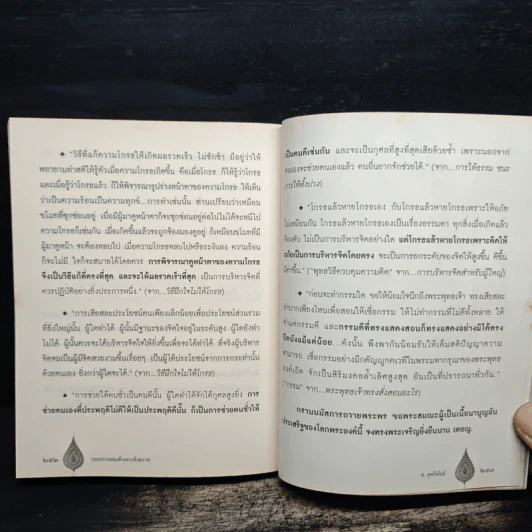 ✦ "วิธีที่แก้ความโกรธให้เกิดผลรวดเร็ว ไม่ชักช้า มีอยู่ว่าให้
พยายามทำสติให้รู้ตัวเมื่อความโกรธเกิดขึ้น คือเมื่อโกรธ ก็ให้รู้ว่าโกรธ
และเมื่อรู้ว่าโกรธแล้ว ก็ให้พิจารณารูปร่างหน้าตาของความโกรธ ให้เห็น
ว่าเป็นความร้อนเป็นความทุกข์...การทำเช่นนั้น ท่านเปรียบว่าเหมือน
ขโมยที่ซุกซ่อนอยู่ เมื่อมีผู้มาดูหน้าตาก็จะซุกซ่อนอยู่ต่อไปไม่ได้จะหนีไป
ความโกรธก็เช่นกัน เมื่อเกิดขึ้นแล้วจะถูกจ้องมองดูอยู่ ก็เหมือนขโมยที่มี
ผู้มาดูหน้า จะต้องหลบไป เมื่อความโกรธหลบไปหรือระงับลง ความร้อน
ก็จะไม่มี ใจก็จะสบายได้ด้วย การพิจารณาหน้าตาของความโกรธ
จึงเป็นวิธีแก้ที่ตรงที่สุด และจะให้ผลรวดเร็วที่สุด เป็นการบริหารจิตที่
ควรปฏิบัติอย่างยิ่งประการหนึ่ง." (จาก...วิธีฝึกใจไม่ให้โกรธ)
✦ "การเสียสละประโยชน์ตนเพียงเล็กน้อยเพื่อประโยชน์ส่วนรวม
ที่ยิ่งใหญ่นั้น ผู้ใดทำได้ ผู้นั้นมีฐานะของจิตใจอยู่ในระดับสูง ผู้ใดยังทำ
ไม่ได้ ผู้นั้นควรจะได้บริหารจิตใจให้ยิ่งขึ้นเพื่อจะได้ทำได้ ที่จริงผู้บริหาร
จิตจนเป็นผู้มีจิตสวยงามขึ้นเรื่อยๆ เป็นผู้ได้ประโยชน์จากการกระทำนั้น
ด้วยตนเอง ยิ่งกว่าผู้ใดจะได้." (จาก...วิธีฝึกใจไม่ให้โกรธ)
✦ "การช่วยให้คนชั่วเป็นคนดีนั้น ผู้ใดทำได้จักได้กุศลสูงยิ่ง การ
ช่วยตนเองที่ประพฤติไม่ดีให้เป็นประพฤติดีนั้น ก็เป็นการช่วยคนชั่วให้
๒๕๒
เป็นคนดีเช่นกัน และจะเป็นกุศลที่สูงที่สุดเสียด้วยซ้ำ เพราะนอกจาก
ตนเองจะช่วยตนเองแล้ว คนอื่นยากจักช่วยได้." (จาก...การให้ธรรม ชนะ
การให้ทั้งปวง)
✦ "โกรธแล้วหายโกรธเอง กับโกรธแล้วหายโกรธเพราะให้อภัย
ไม่เหมือนกัน โกรธแล้วหายโกรธเองเป็นเรื่องธรรมดา ทุกสิ่งเมื่อเกิดแล้ว
ต้องดับ ไม่เป็นการบริหารจิตอย่างใด แต่โกรธแล้วหายโกรธเพราะคิดให้
อภัยเป็นการบริหารจิตโดยตรง จะเป็นการยกระดับของจิตให้สูงขึ้น ดีขึ้น
มีค่าขึ้น." ("พุทธวิธีควบคุมความคิด" จาก...การบริหารจิตสำหรับผู้ใหญ่)
✦ "ก่อนจะทำกรรมใด ขอให้น้อมใจนึกถึงพระพุทธเจ้า ทรงเสียสละ
ลำบากเพียงไหนเพื่อสอนให้เชื่อกรรม ให้ไม่ทำกรรมที่ไม่ดีทั้งหลาย ให้
ทำแต่กรรมดี และกรรมดีที่ทรงแสดงสอนก็ทรงแสดงอย่างมิได้ทรง
ปิดบังแม้แต่น้อย...ดังนั้น พึงพากันน้อมรับให้เต็มสติปัญญาความ
สามารถ เชื่อกรรมอย่างมีกตัญญูกตเวทีในพระมหากรุณาของพระพุทธ
องค์เถิด จักเป็นสิริมงคลล้ำเลิศสูงสุด อันเป็นที่ปรารถนาทั่วกัน."
("กรรม" จาก...พระพุทธเจ้าทรงสั่งสอนอะไร)
กราบนมัสการถวายพระพร ขอพระสมณะผู้เป็นเนื้อนาบุญอัน
ประเสริฐของโลกพระองค์นี้ จงทรงพระเจริญยิ่งยืนนาน เทอญ.
อ. สุทธิพันธ์
๒๕๓